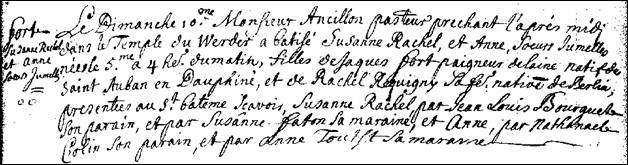 Le Dimanche 10.me Monsieur Ancillon pasteur prechant l'après midi
dans le Temple du Werder a batisé Susanne Rachel, et Anne, Soeurs Jumelles
nées le 5.me à 4 he. du matin, filles de Jaques fort peigneur de laine natif de
Saint Auban en Dauphiné, et de Rachel Requigny sa fe. native de Berlin,
presentées au St. batême scavoir, Susanne Rachel par Jean Louis Bourguet
son parain, et par Susanne faton sa maraine, et Anne, par Nathanael
son parain, et par Anne sa maraine
fort
Susanne Rachel
et anne
soeurs Jumelles